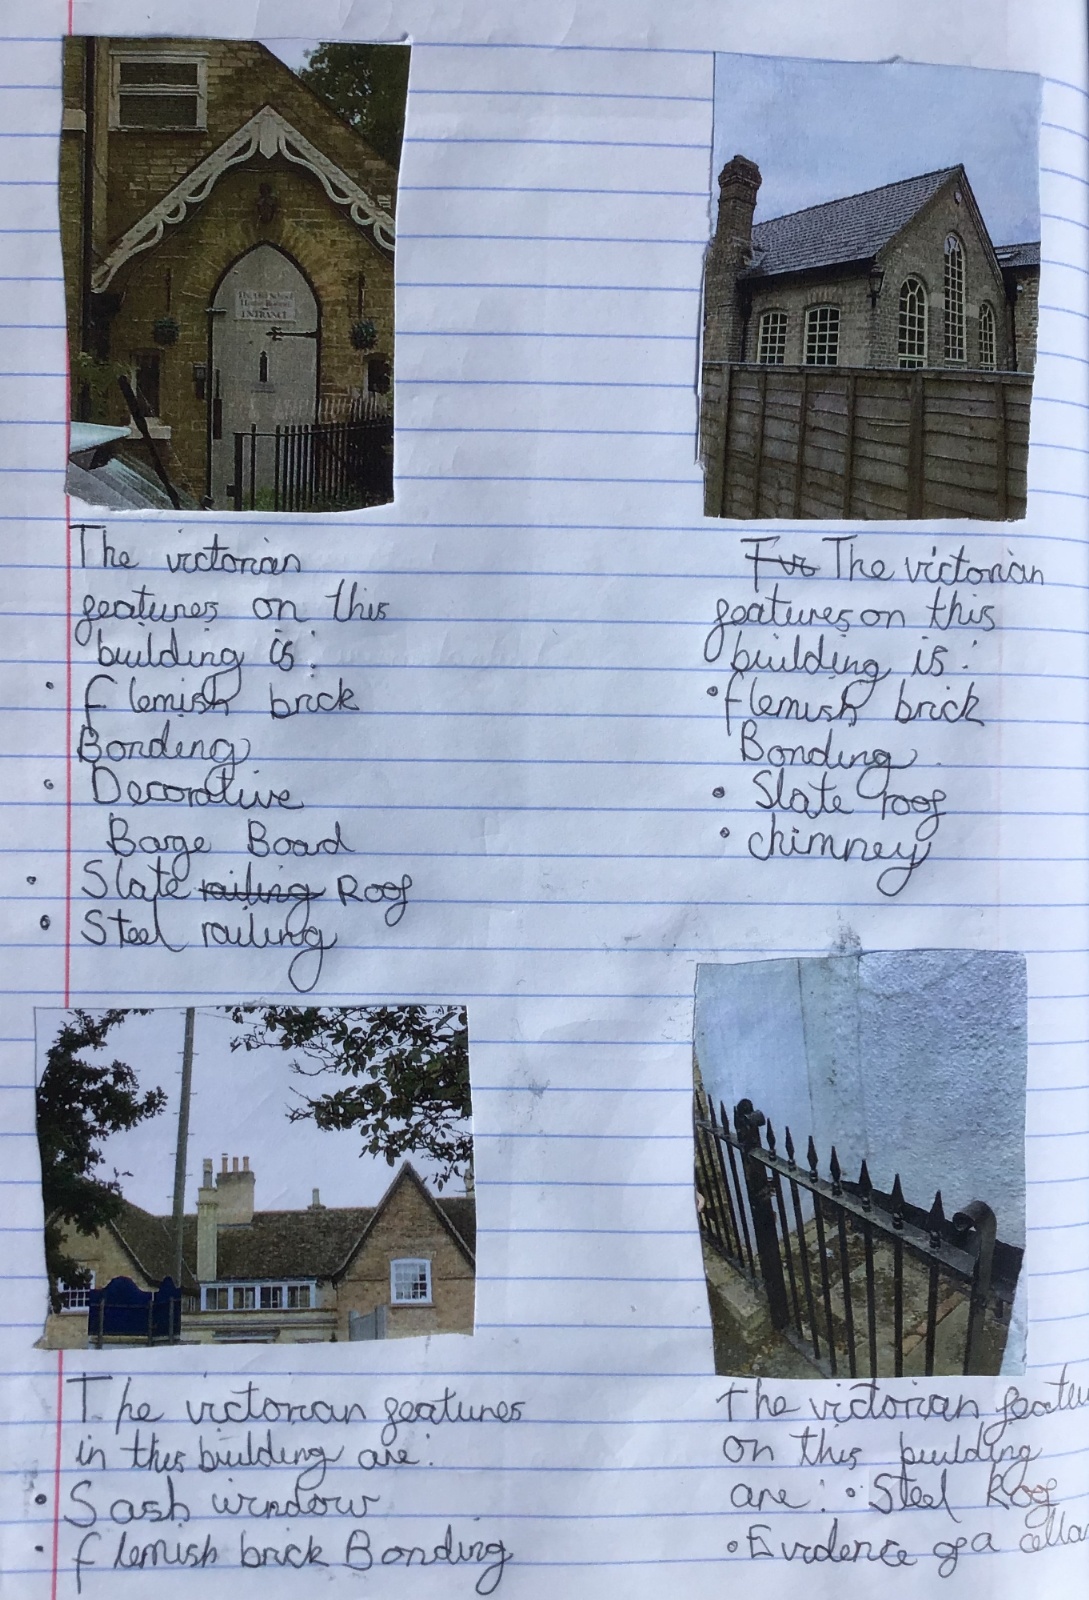 The Old School
House Rooms
ENTRANCE
The victorian
features on this
building is:
• flemish brick
Bonding
• Decorative
Barge Board
• Slate railing Roof
• Steel railing
Fur The victorian
features on this
building is:
• flemish brick
Bonding.
• Slate roof
• chimney
The victorian features
in this building are:
• Sash window
• flemish brick Bonding
the victorian featu
on this building
are: • Steel Roof
• Evidence of a cella